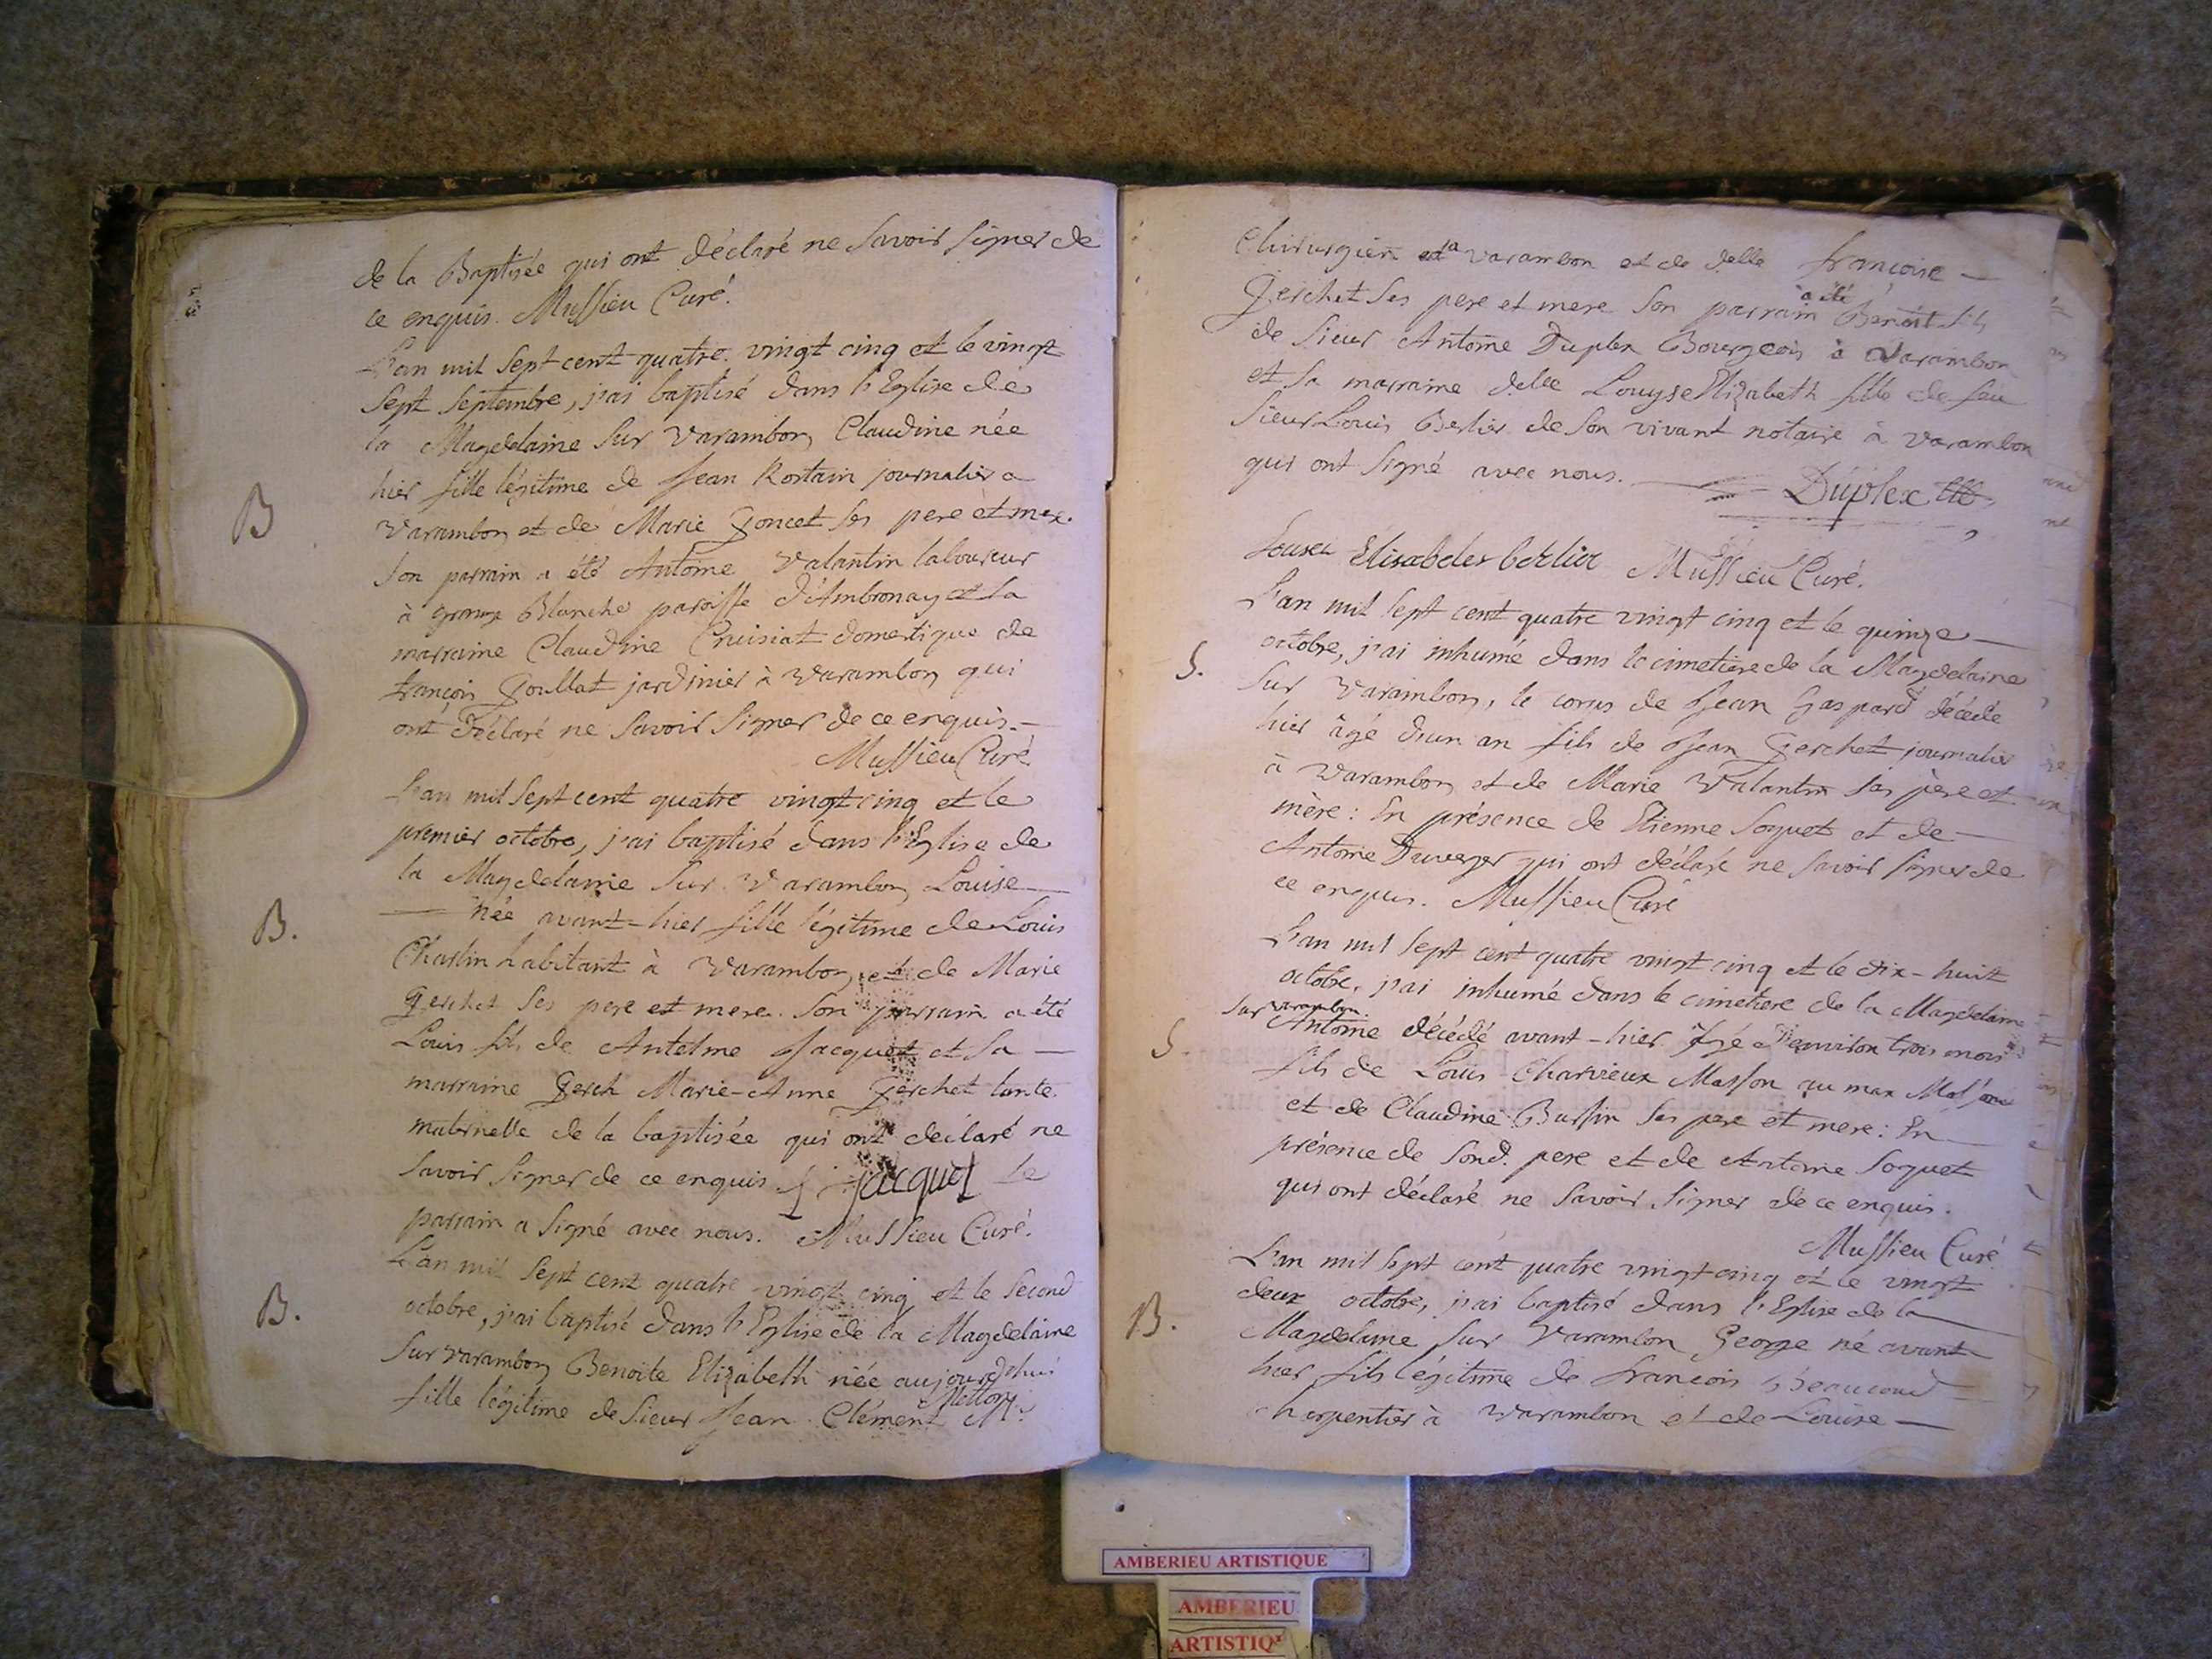 de la Baptisée qui ont déclaré ne savoir signer de
ce enquis. Mussieu Curé.
L'an mil sept cent quatre vingt cinq et le vingt
sept septembre, j'ai baptisé dans l'Eglise de
la Magdelaine sur Varambon Claudine née
hier fille légitime de Jean Rostain journalier a
B
Varambon et de Marie Goncet ses pere et mere.
son parrain a été Antoine Valantin laboureur
à grange Blanche paroisse d'Ambronay et la
marraine Claudine Cruisiat domestique de
françois Goullat jardinier à Varambon qui
ont déclaré ne savoir signer de ce enquis.
Mussieu Curé
L'an mil sept cent quatre vingt cinq et le
premier octobre, j'ai baptisé dans l'Eglise de
la Magdelaine sur Varambon Louise
B.
née avant-hier fille légitime de Louis
Charlin habitant à Varambon, et de Marie
Gerchet ses pere et mere. son parrain a été
Louis fils de Antelme Jacquet et sa
marraine Gerch Marie-Anne Gerchet tante
maternelle de la baptisée qui ont déclaré ne
savoir signer de ce enquis. jacquet le
parrain a signé avec nous. Mussieu Curé.
L'an mil sept cent quatre vingt cinq et le second
B.
octobre, j'ai baptisé dans l'Eglise de la Magdelaine
sur Varambon Benoite Elizabeth née aujourd'hui
fille légitime de sieur Jean Clément
chirurgien a Varambon et de delle françoise
Gerchet ses pere et mere son parrain a été Benoit fils
de sieur Antoine Duplex Bourgeois à Varambon
et sa marraine delle Louyse Elizabeth fille de feu
sieur Louis Berlier de son vivant notaire à Varambon
qui ont signé avec nous.
Duplex
Elisabeler berlier Mussieu Curé.
L'an mil sept cent quatre vingt cinq et le quinze
octobre, j'ai inhumé dans le cimetiere de la Magdelaine
S.
sur Varambon, le corps de Jean Gaspard décédé
hier âgé d'un an fils de Jean Gerchet journalier
à Varambon et de Marie Valantin ses père et
mère: En présence de Etienne Soquet et de
Antoine Duverger qui ont déclaré ne savoir signer de
ce enquis. Mussieu Curé
L'an mil sept cent quatre vingt cinq et le dix-huit
octobre, j'ai inhumé dans le cimetiere de la Magdelaine
sur varambon.
S.
Antoine décédé avant-hier âgé d'environ trois mois
fils de Louis Charvieux Masson au
et de Claudine Bussin ses pere et mere: En
présence de sond. pere et de Antoine Soquet
qui ont déclaré ne savoir signer de ce enquis.
Mussieu Curé
L'an mil sept cent quatre vingt cinq et le vingt
deux octobre, j'ai baptisé dans l'Eglise de la
B.
Magdelaine sur Varambon George né avant
hier fils légitime de françois Beaucoud
charpentier à Varambon et de Louise
AMBERIEU ARTISTIQUE
AMBERIEU
ARTISTIQ